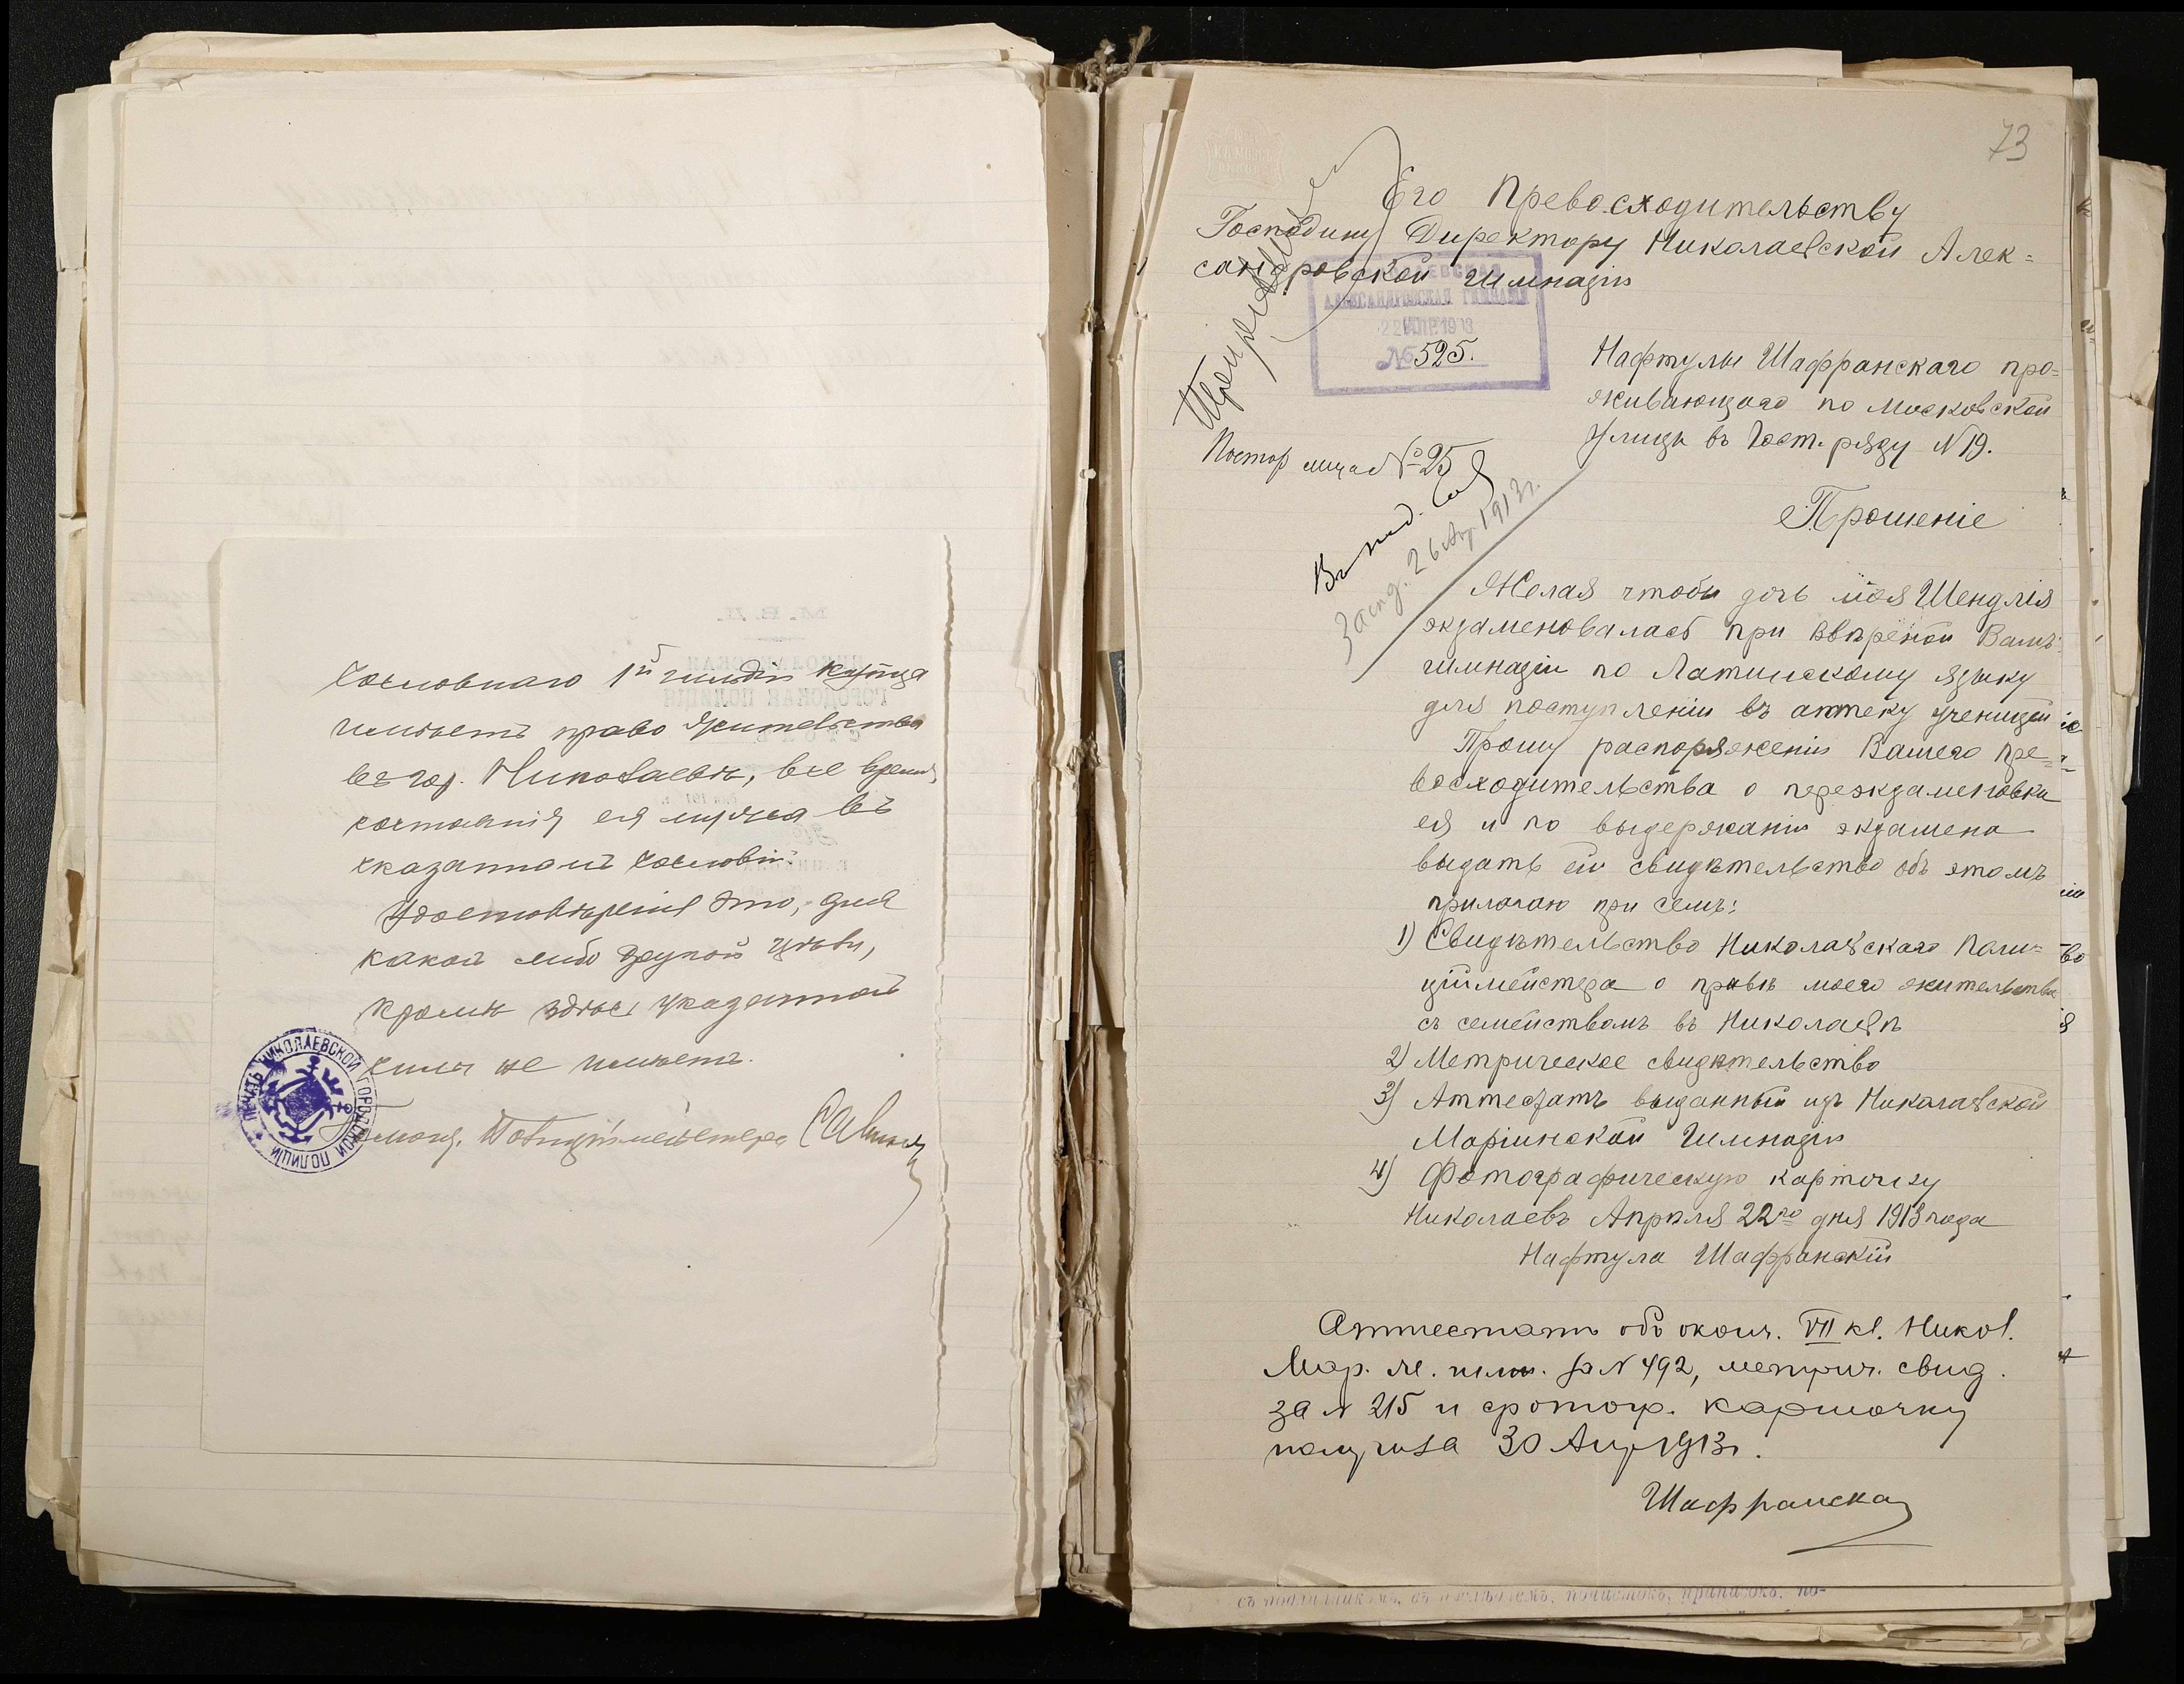 сословнаго 1й гильдіи купца
имѣетъ право жительства
въ гор. Николаевѣ, все время
состоянія ея мужа въ
сказанномъ сословіи.
Удостовѣреніе это, для
какой либо другой цѣли,
кромѣ здѣсь указанной
силы не имѣетъ.
Полиціймейстера
ПЕЧАТЬ НИКОЛАЕВСКОЙ ГОРОДСКОЙ ПОЛИЦІИ
73
Его Превосходительству
Господину Директору Николаевской Алек=
сандровской Гимназіи
НИКОЛАЕВСКАЯ
АЛЕКСАНДРОВСКАЯ ГИМНАЗІЯ
22 АПР. 1913
№ 525.
Нафтулы Шафранскаго про=
живающаго по Московской
Улицѣ въ Гост. ряду N 19.
Постор лица № 25
Въ пед. Сов
Засѣд. 26 Апр. 1913 г.
Прошеніе
Желая чтобы дочь моя Шендля
экзаменовалась при ввѣреной Вамъ
гимназіи по Латинскому языку
для поступленіи въ аптеку ученицей
Прошу распоряженіи Вашего Пре=
восходительства о переэкзаменовки
ея и по выдержаніи экзамена
выдать ей свидѣтельство объ этомъ
прилагаю при семъ:
1) Свидѣтельство Николаевскаго Поли=
ціймейстера о правѣ моего жительства
съ семействомъ въ Николаевѣ
2) Метрическое свидѣтельство
3) Аттестатъ выданный изъ Николаевской
Маріинской Гимназіи
4) Фотографическую карточку
Николаевъ Апрѣля 22го дня 1913 года
Нафтула Шафранскій
Аттестатъ объ оконч. VII кл. Никол.
Мар. ж. гимн. за N 492, метрич. свид.
за N 215 и фотогр. карточку
получила 30 Апр 1913 г.
Шафранская